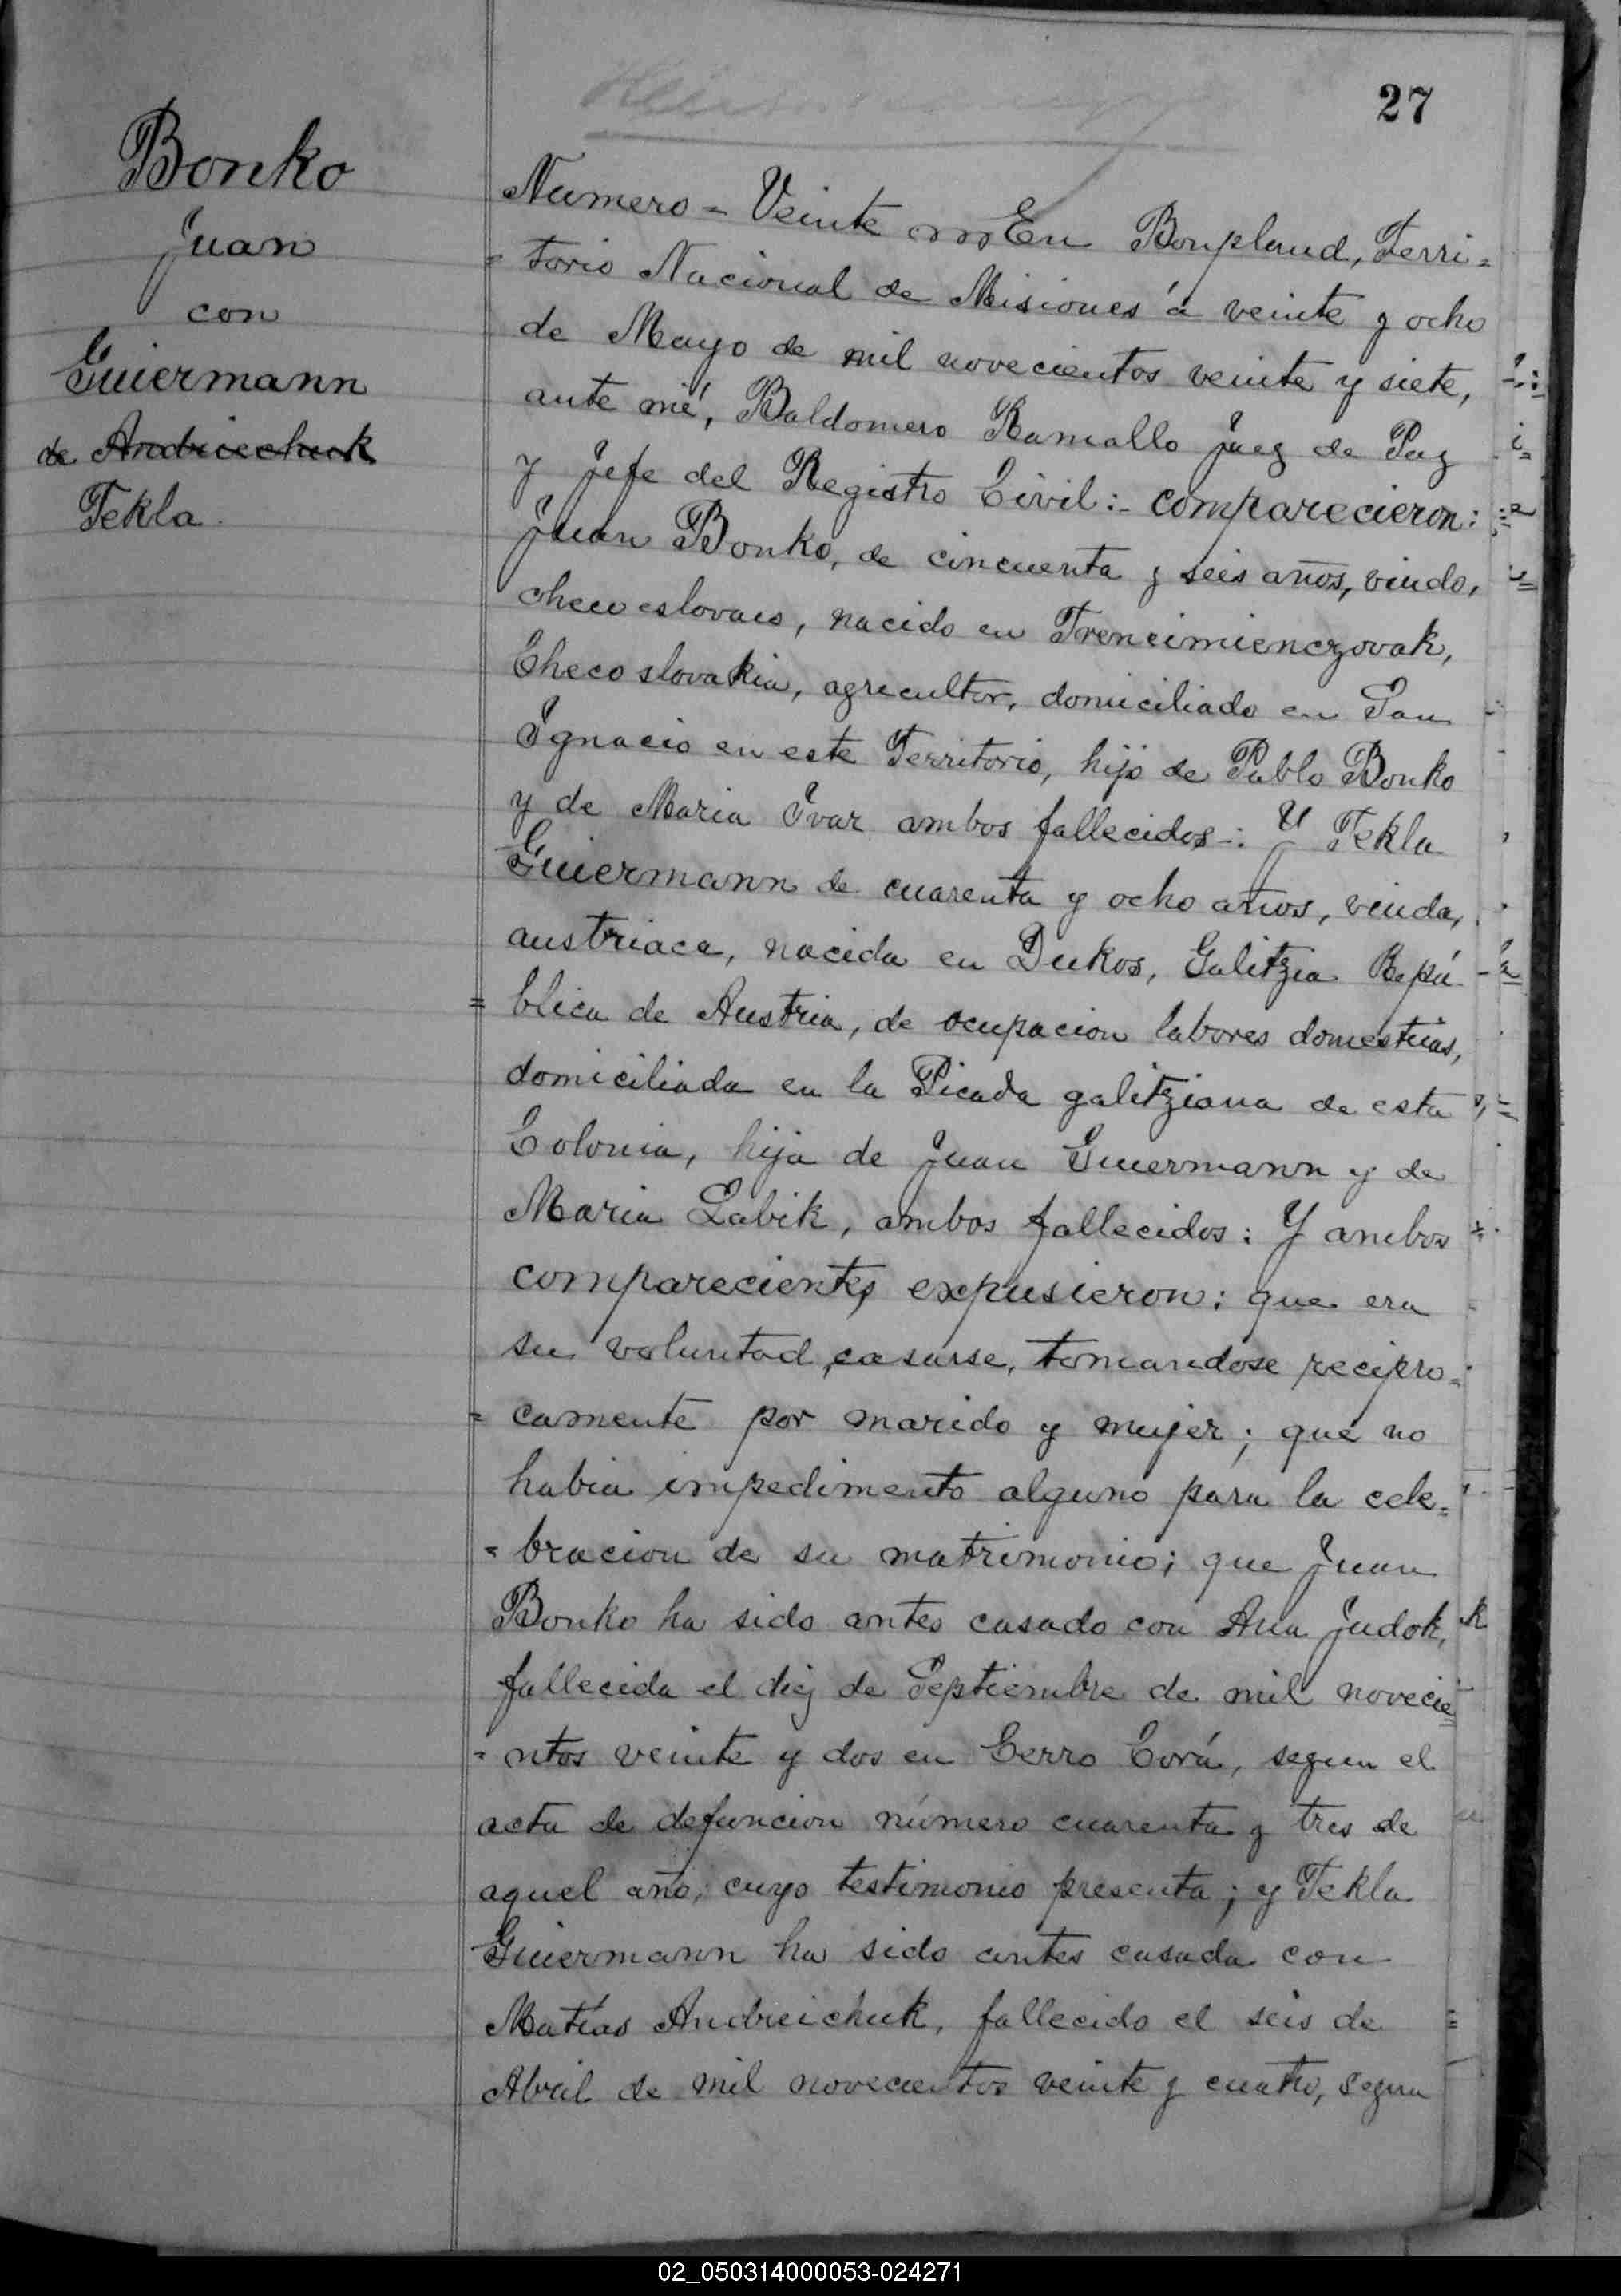 27
Bonko
Juan
con
Guiermann
de Andreechuk
Tekla.
Numero = Veinte En Bonpland, Terri=
= torio Nacional de Misiones á veinte y ocho
de Mayo de mil novecientos veinte y siete,
ante mí, Baldomero Ramallo Juez de Paz
y Jefe del Registro Civil:- comparecieron:
Juan Bonko, de cincuenta y seis años, viudo,
checoeslovaco, nacido en Trencimienczovak,
Checoslovakia, agricultor, domiciliado en San
Ignacio en este Territorio, hijo de Pablo Bonko
y de Maria Ivar ambos fallecidos:- Y Tekla
Guiermann de cuarenta y ocho años, viuda,
austriaca, nacida en Dukos, Galitzia Repú-
= blica de Austria, de ocupacion labores domesticas,
domiciliada en la Picada galitziana de esta
Colonia, hija de Juan Guiermann y de
Maria Labik, ambos fallecidos: Y ambos
comparecientes expusieron: que era
su voluntad casarse, tomandose recipro=
= camente por marido y mujer; que no
habia impedimento alguno para la cele=
= bracion de su matrimonio; que Juan
Bonko ha sido antes casado con Ana Judok,
fallecida el diez de Septiembre de mil novecie
= ntos veinte y dos en Cerro Corá, segun el
acta de defuncion número cuarenta y tres de
aquel año, cuyo testimonio presenta; y Tekla
Guiermann ha sido antes casada con
Matías Andreichuk, fallecido el seis de
Abril de mil novecientos veinte y cuatro, segun
02_050314000053-024271